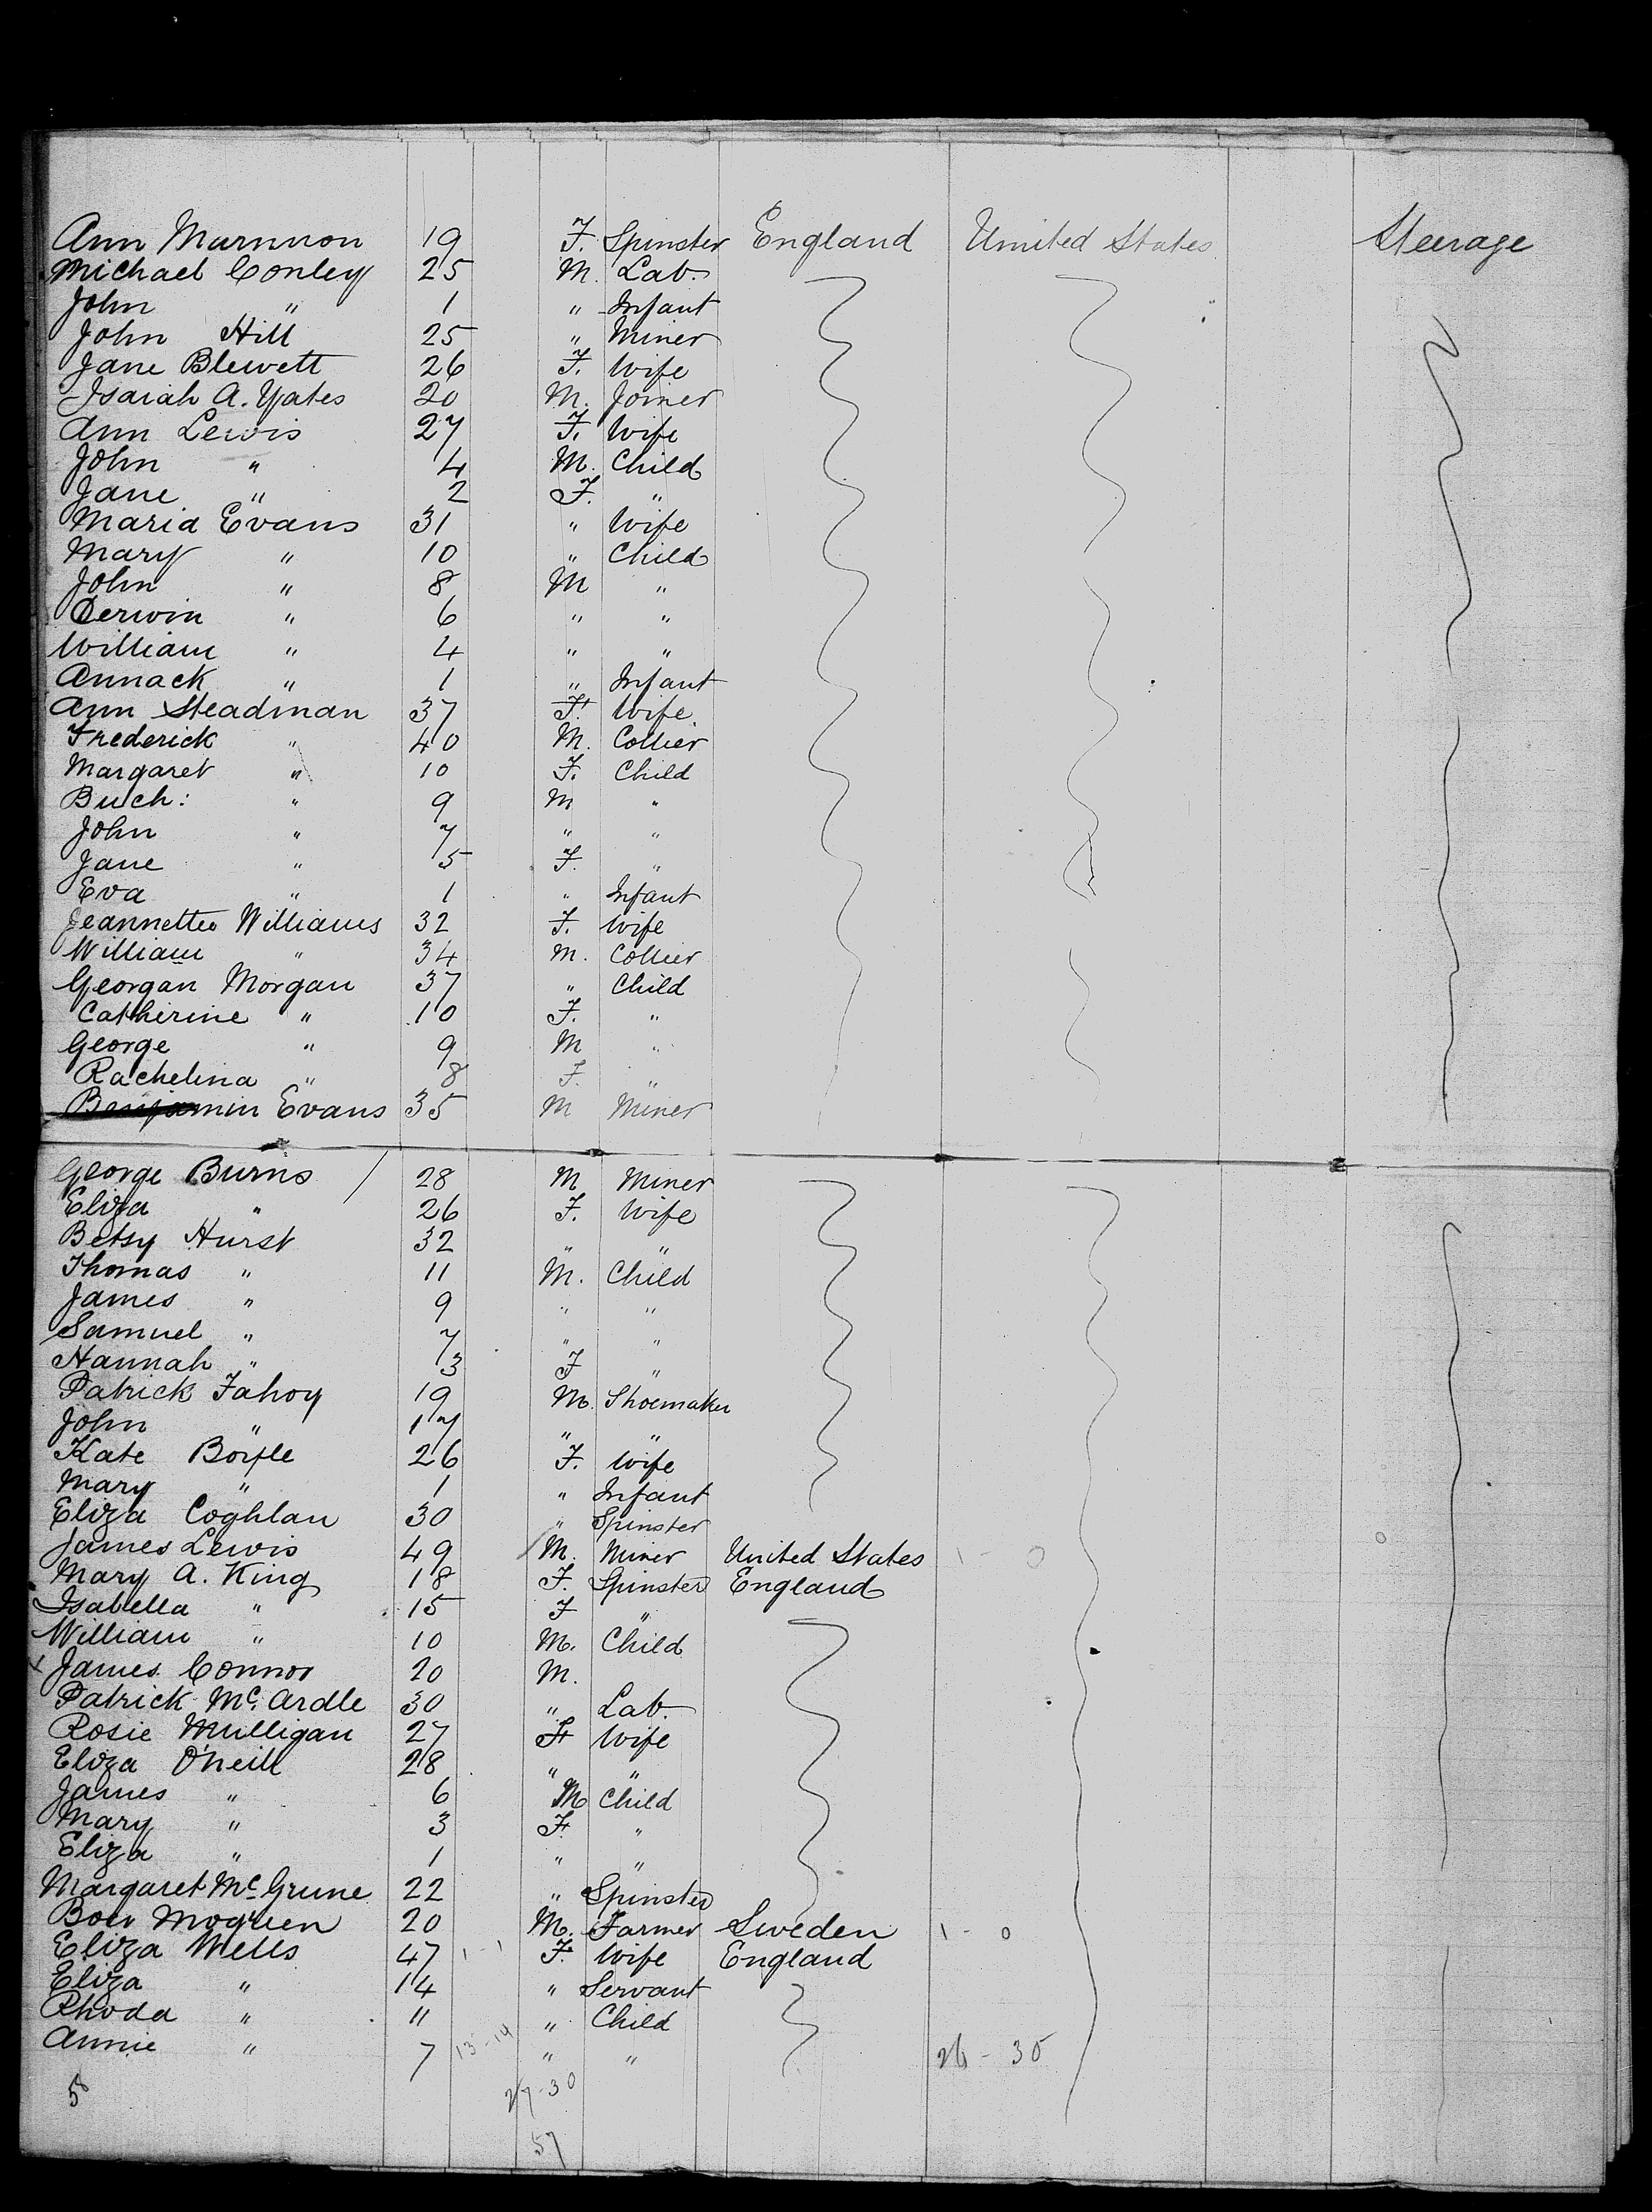 Ann Murnnon 19 F. Spinster England United States Steerage
Michael Conley 25 M. Lab.
John " 1 " Infant
John Hill 25 " Miner
Jane Blewett 26 F. Wife
Isaiah A. Yates 20 M. Joiner
Ann Lewis 27 F. Wife
John " 4 M. Child
Jane " 2 F. "
Maria Evans 31 " Wife
Mary " 10 " Child
John " 8 M "
Derwin " 6 " "
William " 4 " "
Annack " 1 " Infant
Ann Steadman 37 F. Wife
Frederick " 40 M. Collier
Margaret " 10 F. Child
Buch: " 9 M "
John " 7 " "
Jane " 5 F. "
Eva " 1 " Infant
Jeannette Williams 32 F. Wife
William " 34 M. Collier
Georgan Morgan 37 " Child
Catherine " 10 F. "
George " 9 M "
Rachelina " 8 F. "
Benjamin Evans 35 M Miner
George Burns / 28 M Miner
Eliza " 26 F. Wife
Betsy Hurst 32 " "
Thomas " 11 M. Child
James " 9 " "
Samuel " 7 " "
Hannah " 3 F "
Patrick Fahoy 19 M. Shoemaker
John " 17 " "
Kate Boyle 26 F. Wife
Mary " 1 " Infant
Eliza Coghlan 30 " Spinster
James Lewis 49 M. Miner United States 1 - 0
Mary A. King 18 F. Spinster England
Isabella " 15 F "
William " 10 M. Child
x James Connor 20 M.
Patrick McArdle 30 " Lab.
Rosie Mulligan 27 F Wife
Eliza O'Neill 28 " "
James " 6 M Child
Mary " 3 F. "
Eliza " 1 " "
Margaret McGrune 22 " Spinster
Moqueen 20 M. Farmer Sweden 1 - 0
Eliza Wells 47 1 - 1 F. Wife England
Eliza " 14 " Servant
Rhoda " 11 " Child
Annie " 7 13 - 14 " " 26 - 30
5 27 - 30
57